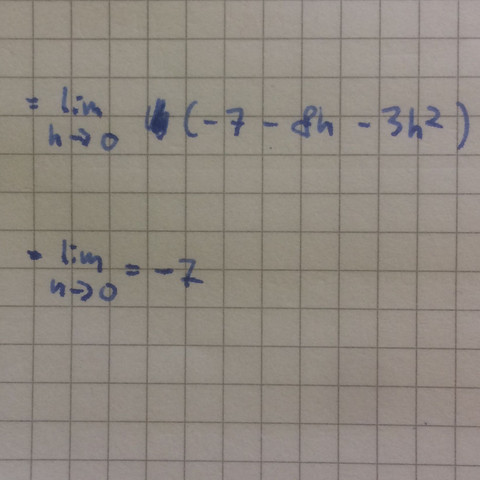 = lim h→0 (-7 - 8h - 3h²)
= lim h→0 = -7